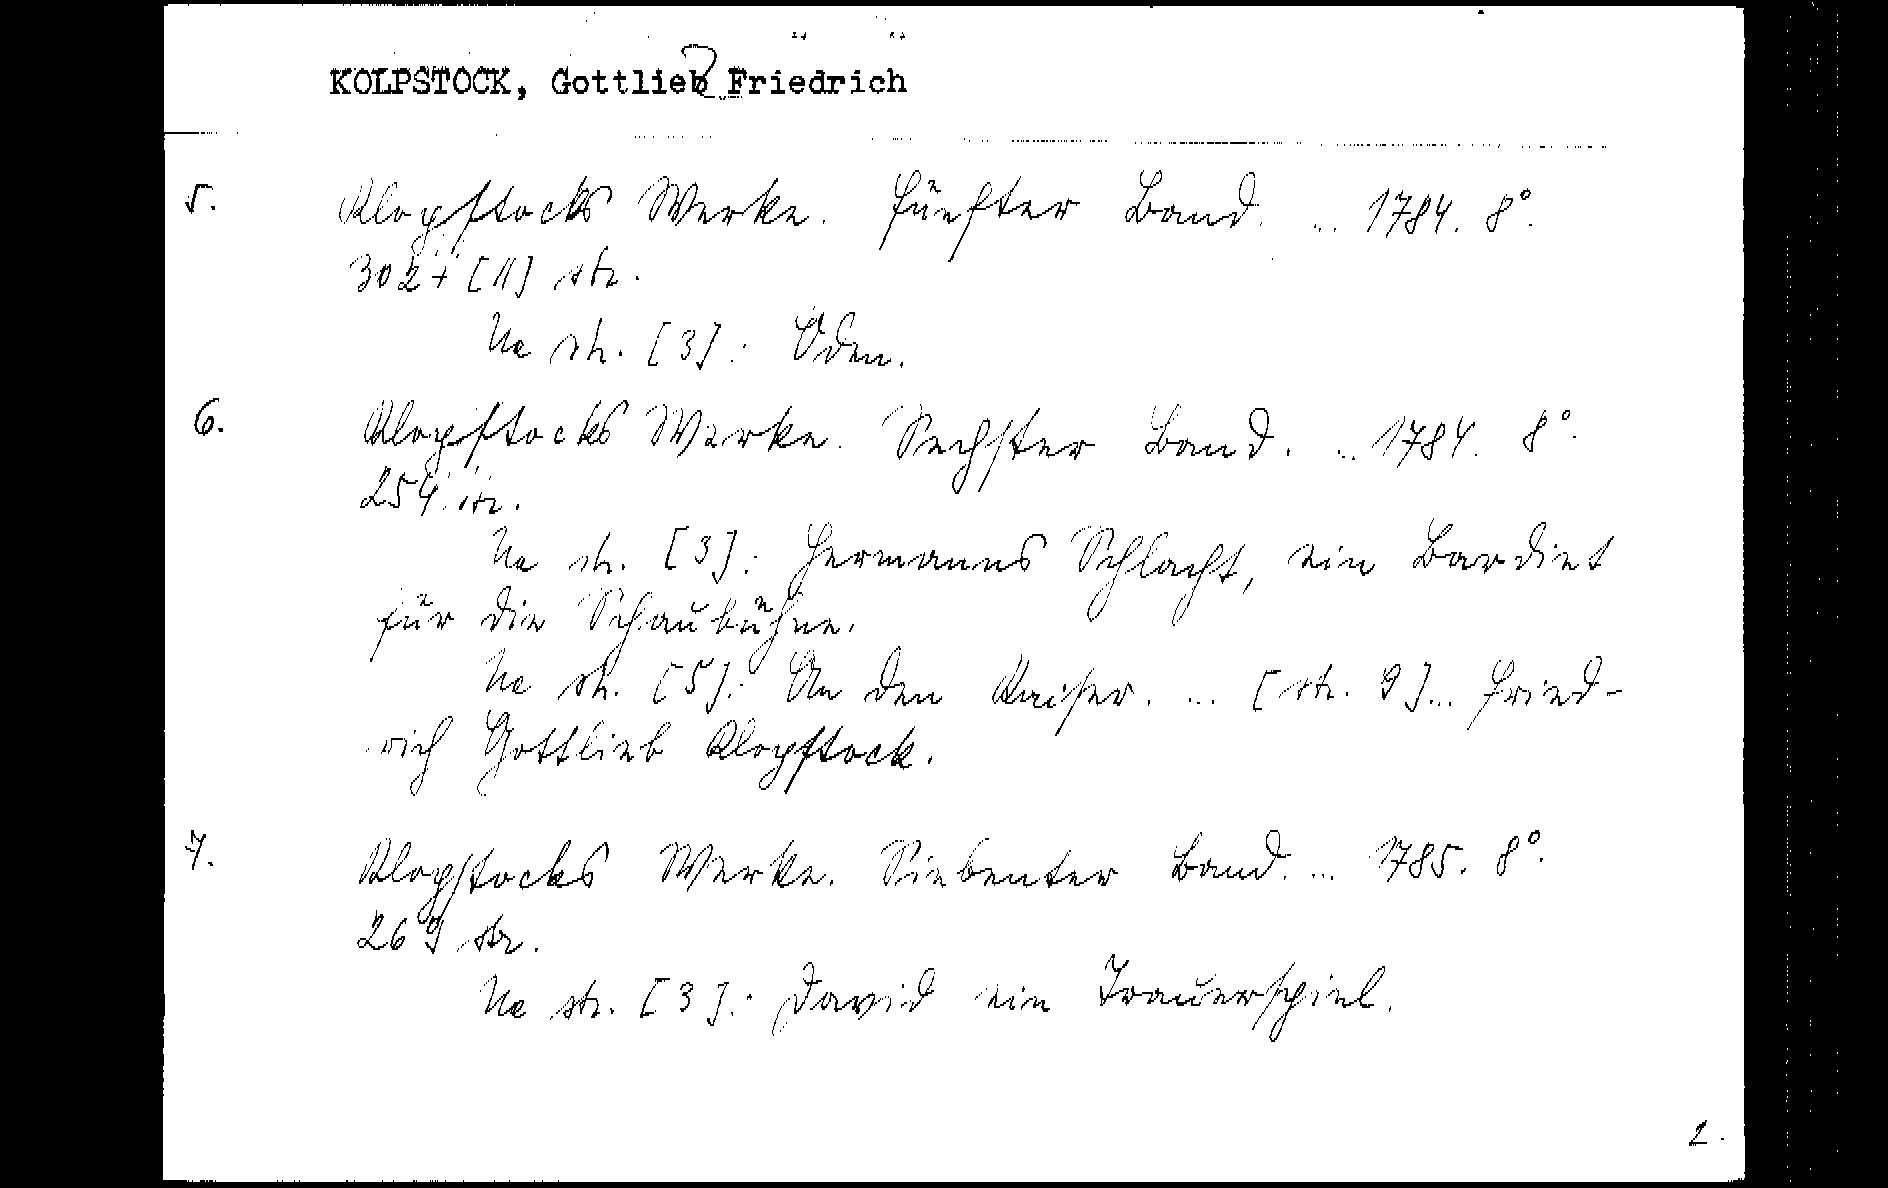 KOLPSTOCK, Gottlieb Friedrich
5. Klopstocks Werke. Fünfter Band. ... 1784. 8°.
302 + [11] str.
Na str. [3]: Oden.
6. Klopstocks Werke. Sechster Band. ... 1784. 8°.
254 str.
Na str. [3]: Hermanns Schlacht, ein Bardiet
für die Schaubühne.
Na str. [5]: An den Kaiser. ... [str. 9] ... Fried-
rich Gottlieb Klopstock.
7. Klopstocks Werke. Siebenter Band. ... 1785. 8°.
269 str.
Na str. [3]: David ein Trauerspiel.
2.